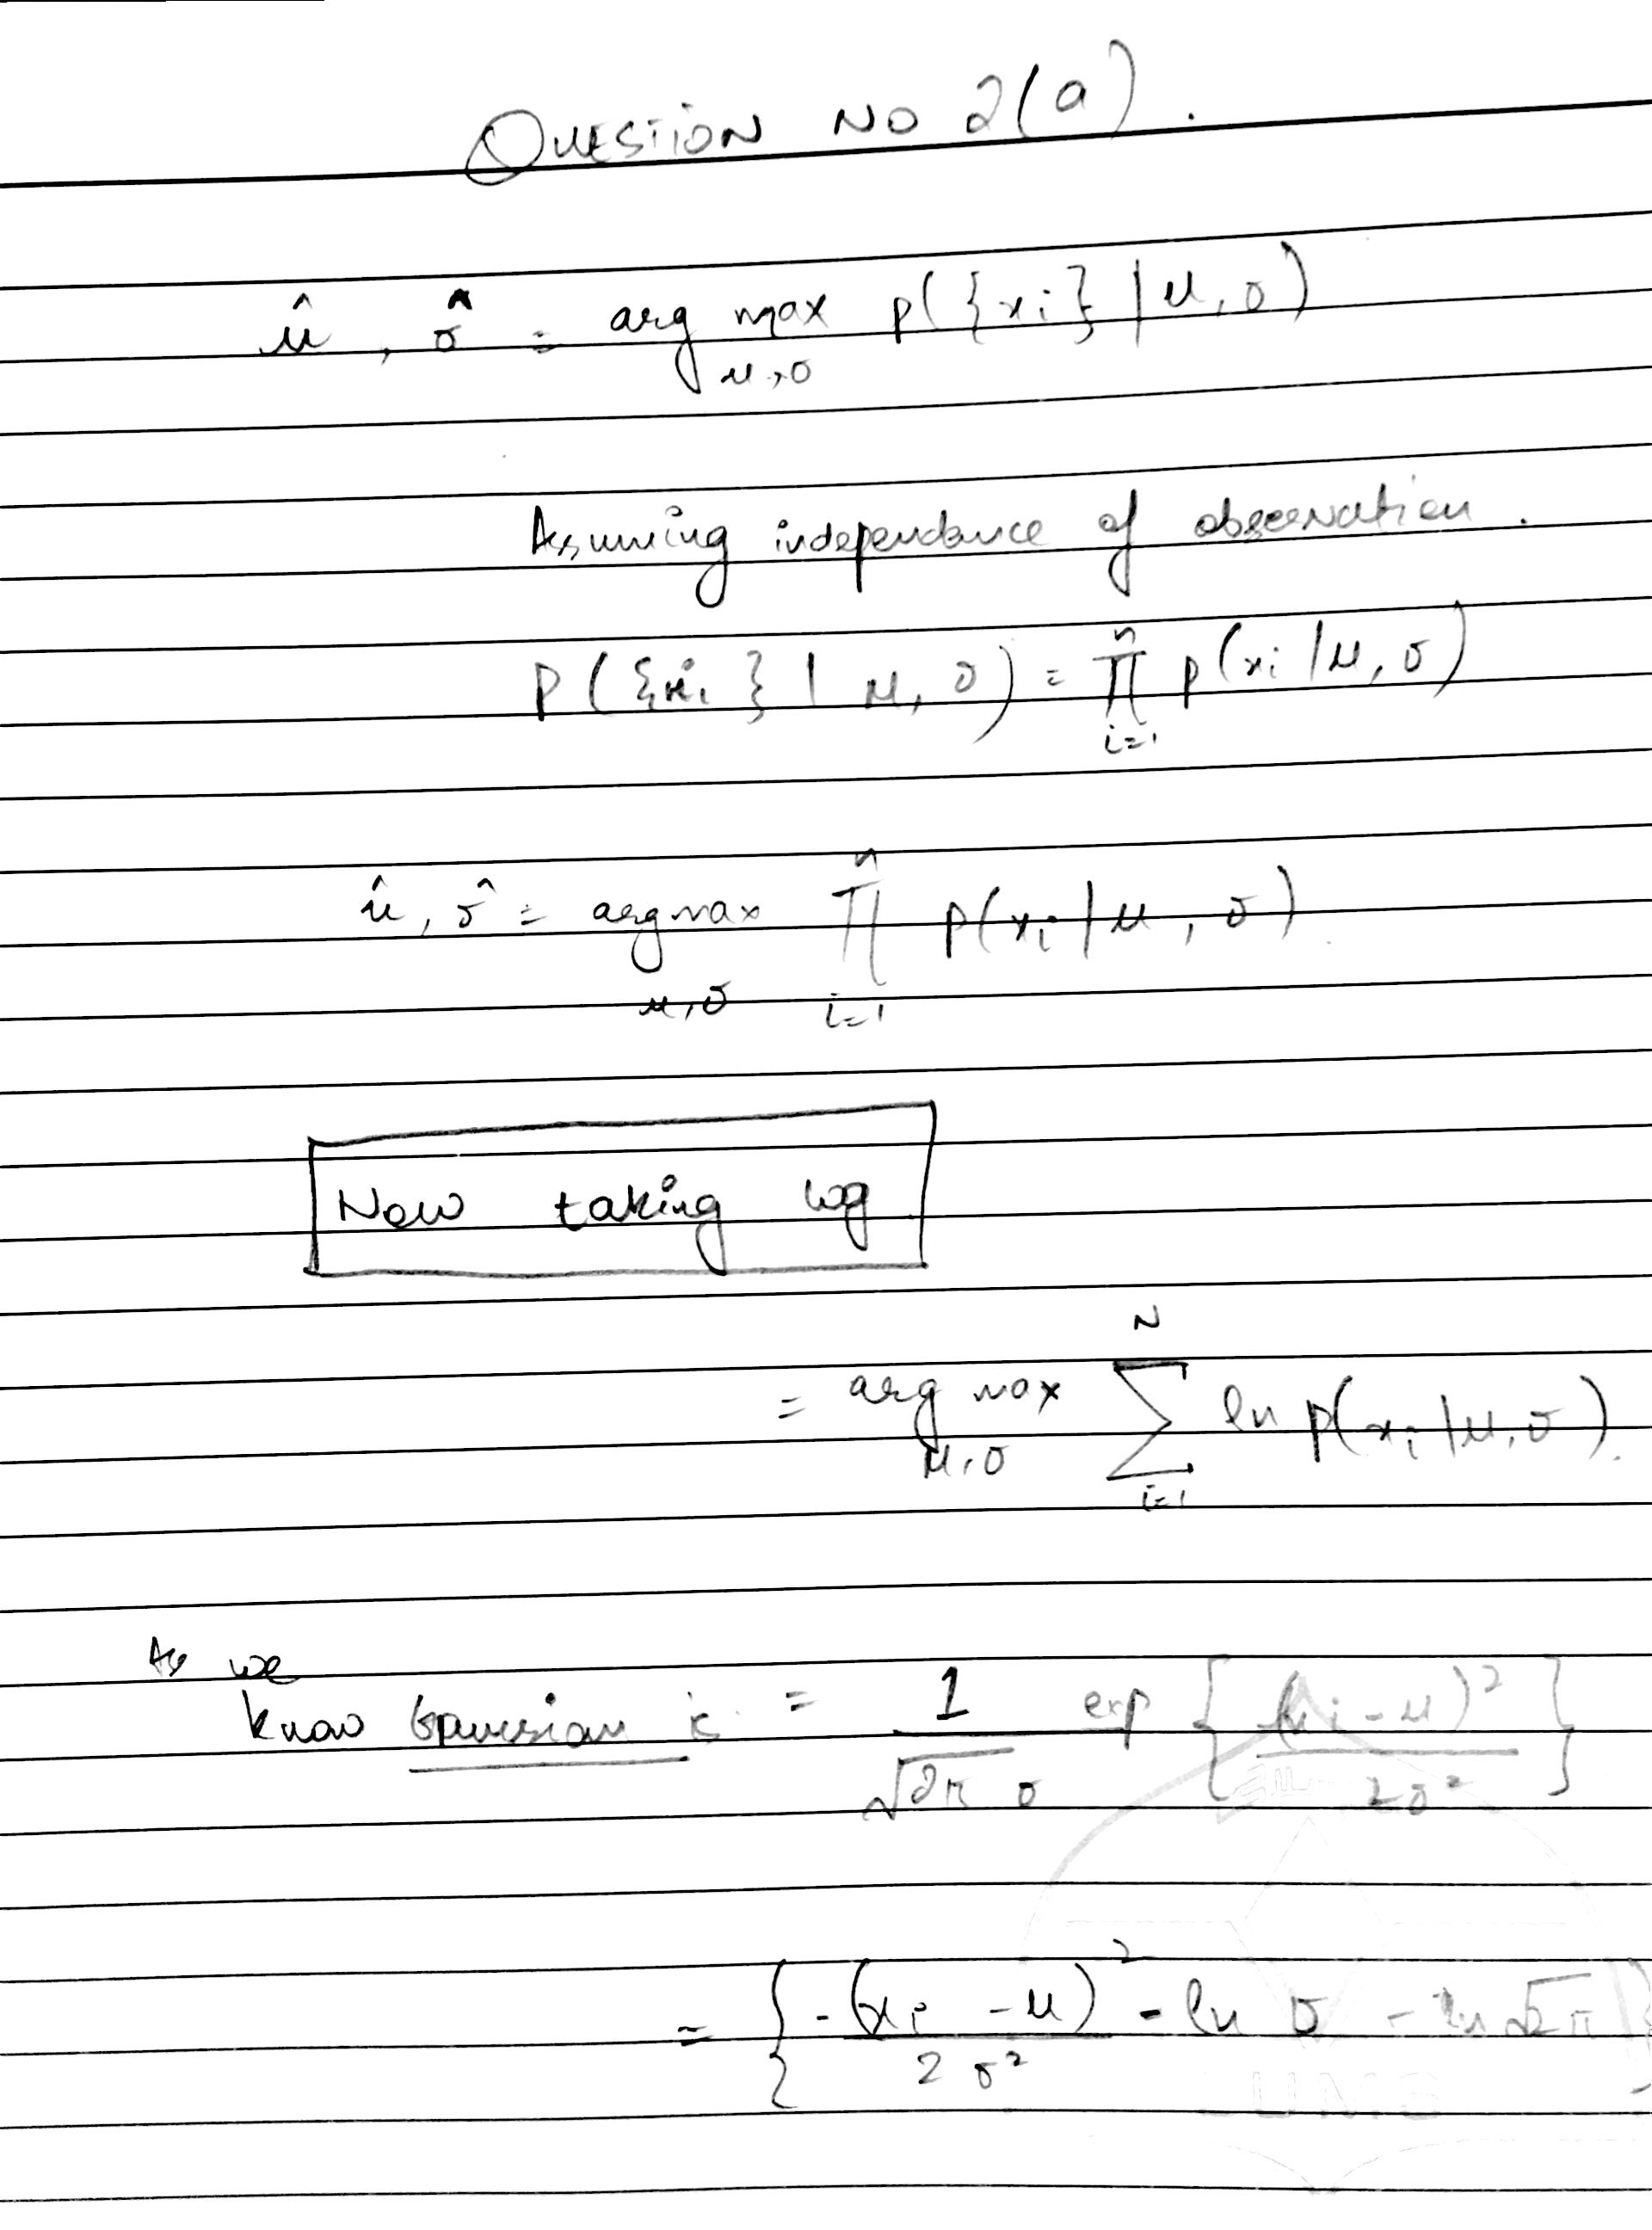 QUESTION NO 2(a).
û, σ̂ = arg max p({xi} | u, σ)
u,σ
Assuming independance of observation.
P({xi} | u, σ) = ∏ⁿ p(xi | u, σ)
i=1
û, σ̂ = argmax ∏ⁿ p(xi | u, σ)
u,σ i=1
Now taking log
N
= arg max ∑ ln p(xi | u, σ).
u,σ i=1
As we
know Gaussian is = 1/(√2π σ) exp { (xi - u)² / 2σ² }
= { -(xi - u)² / 2σ² - ln σ - ln √2π }
LUMS